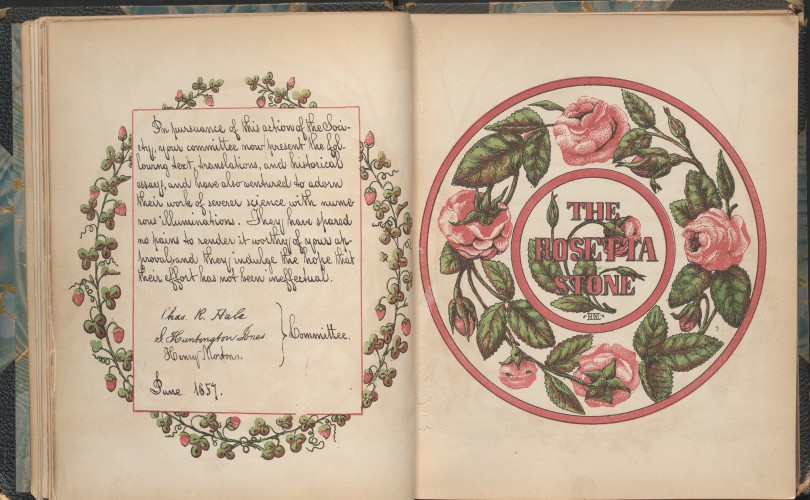 In pursuance of this action of the Soci-
ety, your committee now present the fol-
lowing text, translations, and historical
essay, and have also ventured to adorn
their work of severer science with nume-
rous illuminations. They have spared
no pains to render it worthy of your ap-
proval, and they indulge the hope that
their effort has not been ineffectual.
Chas. R. Hale
S. Huntington Jones
Henry Morton.
Committee.
June 1857.
THE
ROSETTA
STONE
HM